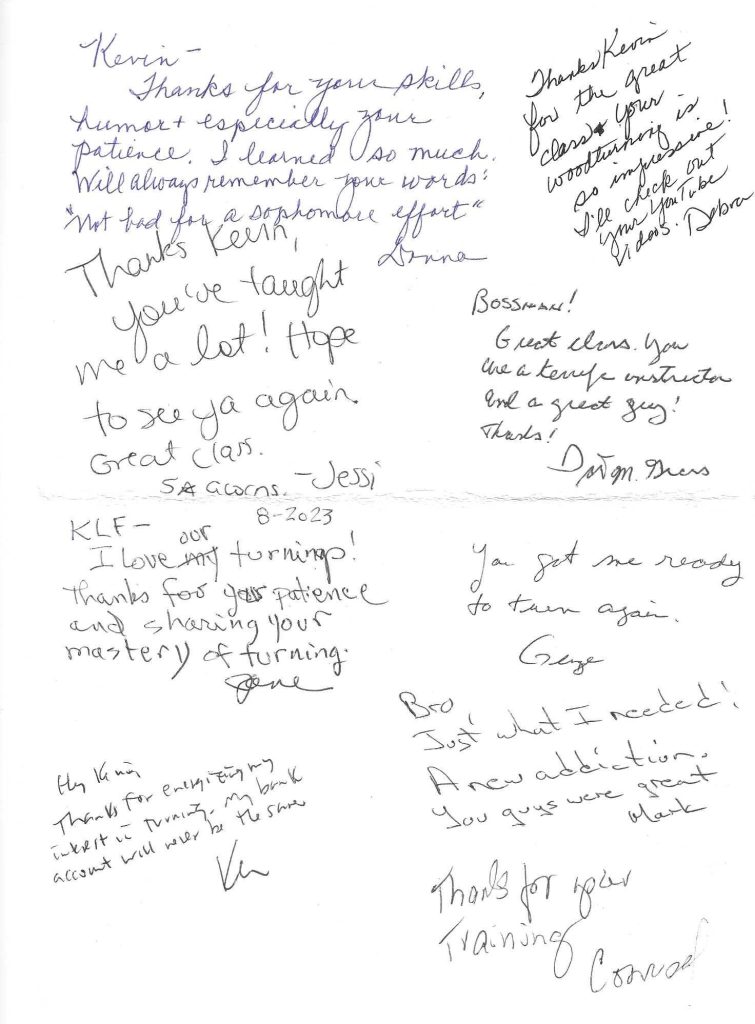 Kevin-
Thanks for your skills,
humor + especially your
patience. I learned so much.
Will always remember your words:
"Not bad for a sophomore effort"
Donna
Thanks Kevin
for the great
class & your
woodturning is
so impressive!
I'll check out
your YouTube
videos. Debra
Thanks Kevin,
you've taught
me a lot! Hope
to see ya again.
Great class.
5☆ acorns. -Jessi
8-2023
Bossman!
Great class. You
are a terrific instructor
and a great guy!
Thanks!
KLF-
I love our turnings!
Thanks for your patience
and sharing your
mastery of turning.
You got me ready
to turn again.
Bro,
Just what I needed!
A new addiction.
You guys were great
Mark
Hey Kevin
Thanks for energizing my
interest in turning. My bank
account will never be the same
Thanks for your
Training
Conrad